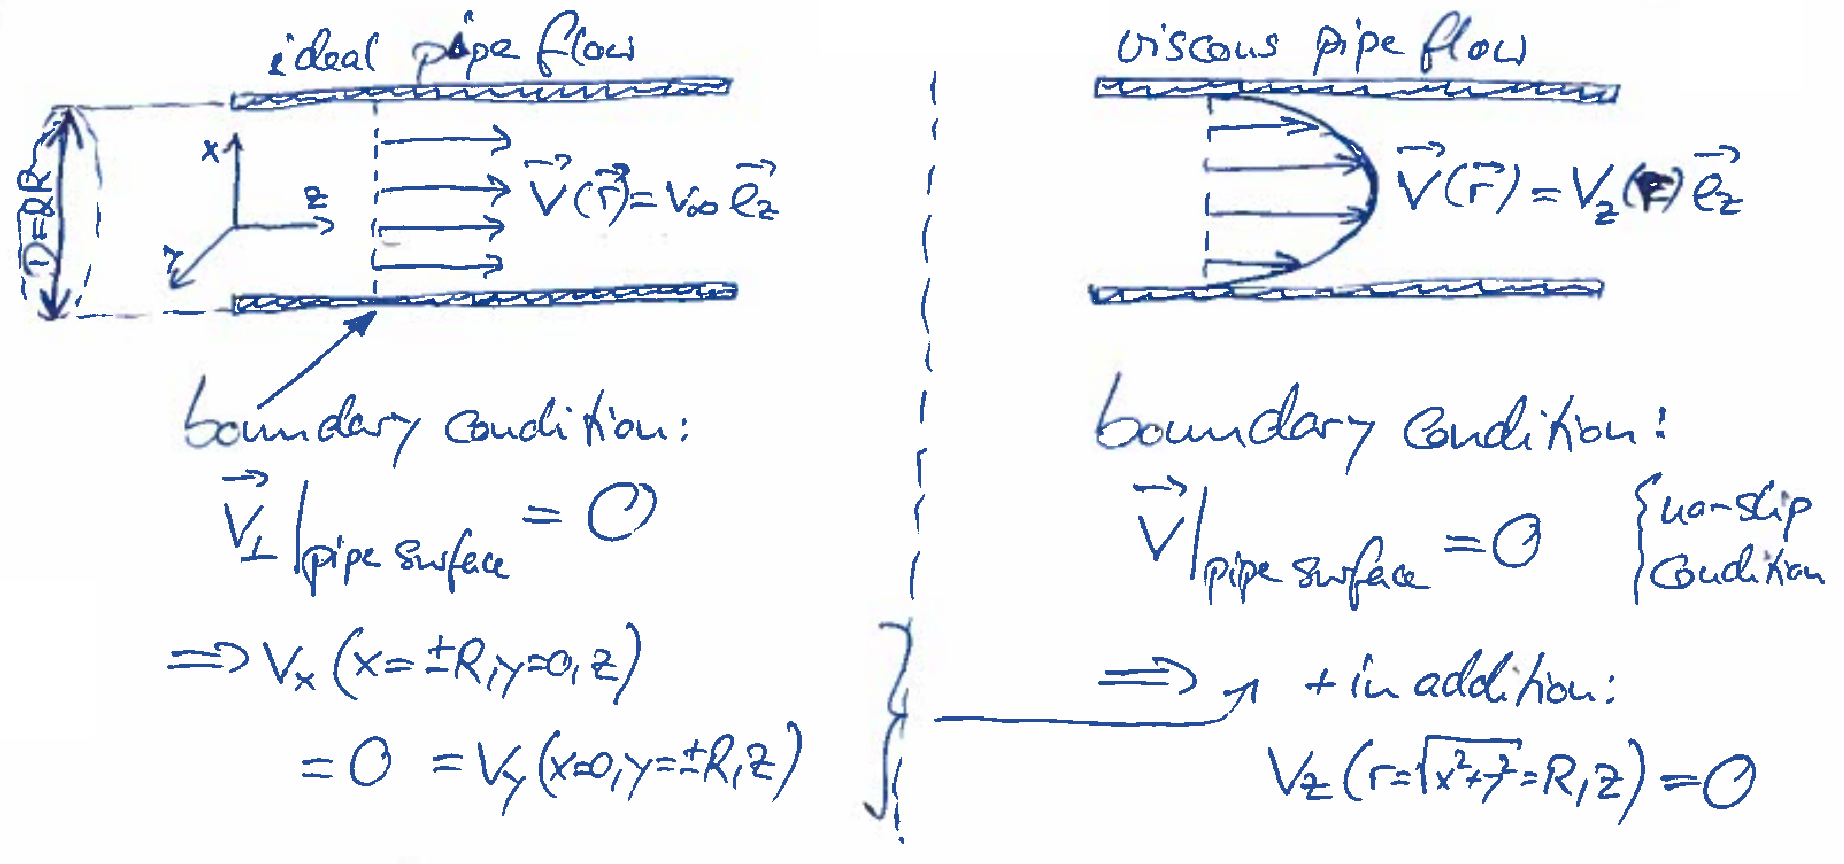 ideal pipe flow
D=2R
x
z
y
\vec{V}(\vec{r}) = V∞ \vec{e}_z
boundary condition:
\vec{V}_⊥ |pipe surface = 0
⟹ V_x (x=±R, y=0, z)
= 0 = V_y (x=0, y=±R, z)
viscous pipe flow
\vec{V}(\vec{r}) = V_z(r) \vec{e}_z
boundary condition:
\vec{V} |pipe surface = 0 { no-slip
condition
⟹ + in addition:
V_z (r=√(x²+y²)=R, z) = 0